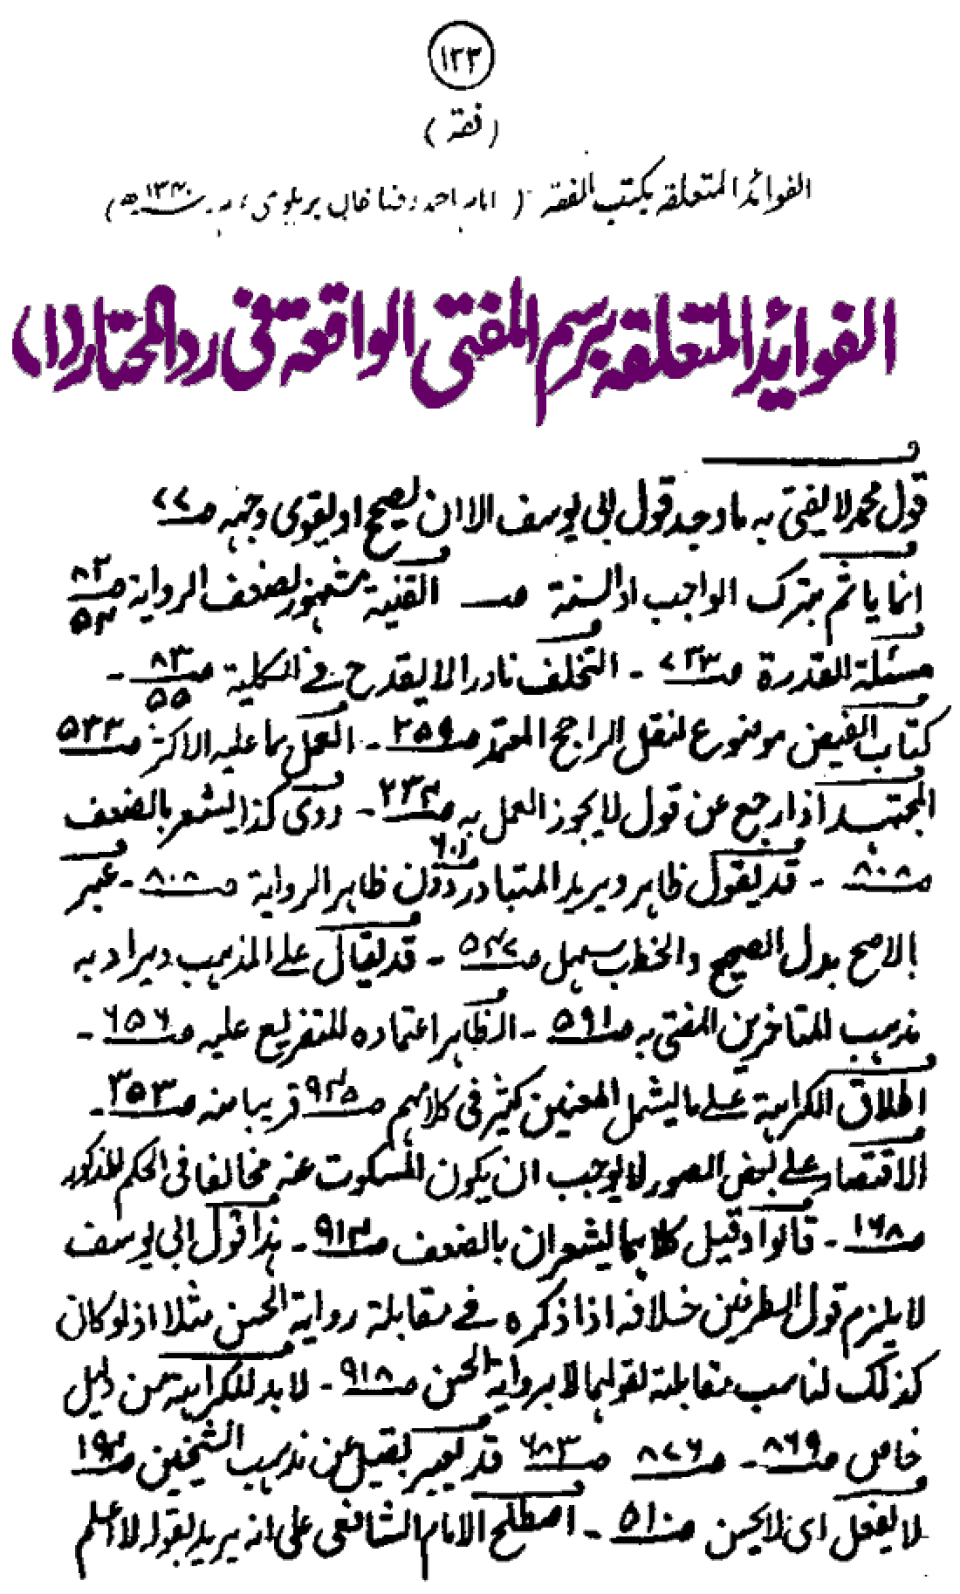 ١٣٣
(فقہ)
الفوائد المتعلقہ بکتب الفقہ ( امام احمد رضا خاں بریلوی، م ١٣٤٠ھ )
الفوائد المتعلقہ برسم المفتی الواقعۃ فی رد المحتار (١)
قول محمد لا یفتی بہ ما وجد قول ابی یوسف الا ان یصحح او یقوی وجہہ صـ٧٧
انما یاثم بترک الواجب او السنۃ صـ القنیۃ مشہور لضعف الروایۃ صـ٨٣ ٥٣
مسئلۃ القدرۃ صـ٧٣٣ - التخلف نادرا لا یقدح فی الکلیۃ صـ٨٣ ٥٥ -
کتاب الفیض موضوع لنقل الراجح المعتمد صـ٢٥٩ - العمل بما علیہ الاکثر صـ٥٣٣
المجتہد اذا رجع عن قول لا یجوز العمل بہ صـ٢٣٣ - روی کذا یشعر بالضعف
صـ٨٠٨ - قد یقول ظاہر ویرید المتبادر دون ظاہر الروایۃ صـ٨٠٨ - عبر
بالاصح بدل الصحیح والخطب سہل صـ٥٤٧ - قد یقال علی المذہب ویراد بہ
مذہب المتاخرین المفتی بہ صـ٥٩١ - الظاہر اعتمادہ للتفریع علیہ صـ٦٥٦ -
اطلاق الکراہۃ علی ما یشمل المعنیین کثیر فی کلامہم صـ٩٤٥ قریبا منہ صـ٣٥٣ -
الاقتصار علی بعض الصور لا یوجب ان یکون المسکوت عنہ مخالفا فی الحکم للمذکور
صـ١٦٨ - قالوا وقیل کلاہما یشعران بالضعف صـ٩١٣ - ہذا قول ابی یوسف
لا یلزم قول الطرفین خلافہ اذا ذکرہ فی مقابلۃ روایۃ الحسن مثلا اذ لو کان
کذلک لناسب مقابلۃ لقولہما لا بروایۃ الحسن صـ٩١٨ - لا بد للکراہۃ من دلیل
خاص صـ٨٦٩ - صـ٨٧٦ صـ٦٨٣ قد یعبر بقیل عن مذہب الشیخین صـ١٩٣
لا یفعل ای لا یحسن صـ٥١ - اصطلح الامام الشافعی علی انہ یرید بقولہ لا اعلم